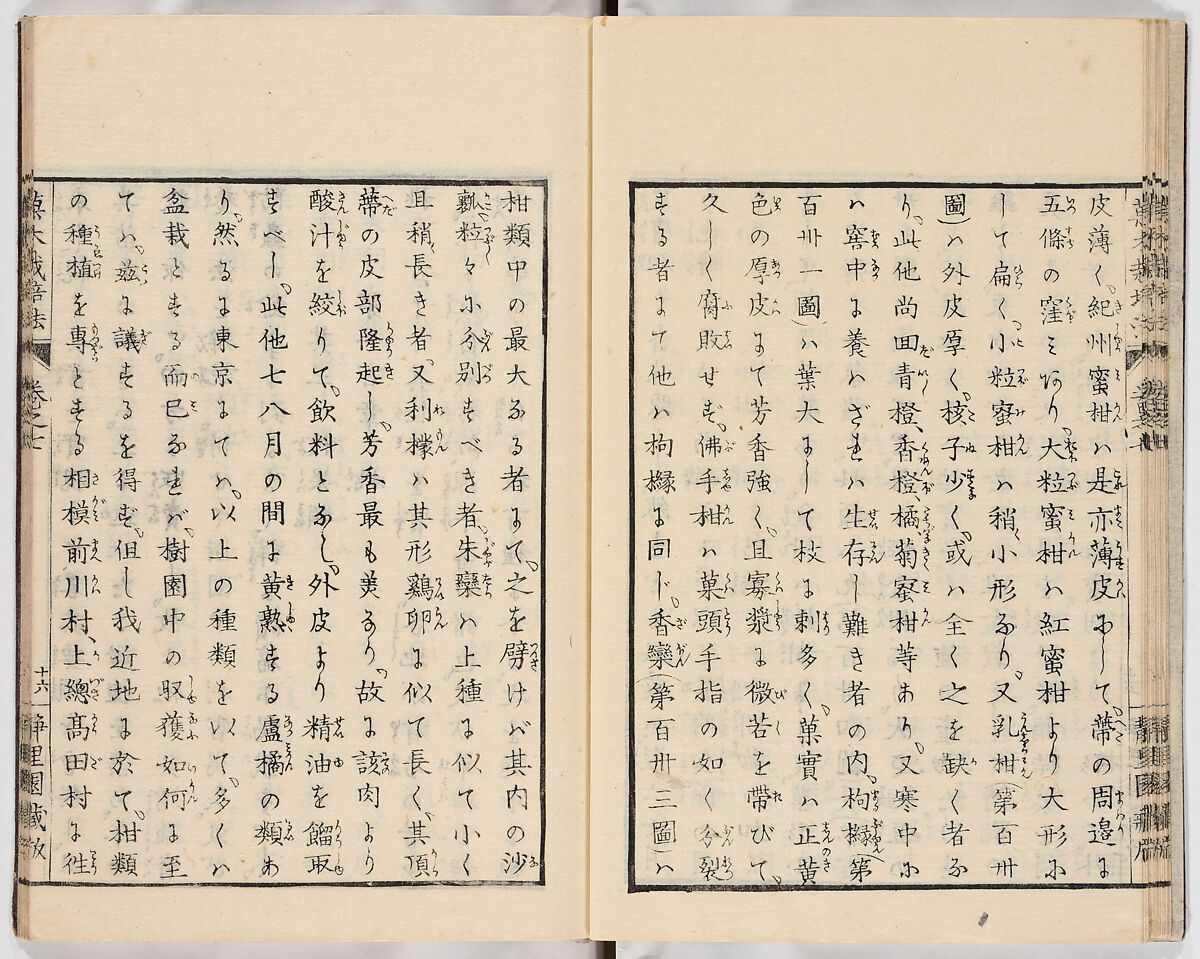 皮薄く、紀州蜜柑ハ是亦薄皮にして、蒂の周邉に
五條の窪ミあり、大粒蜜柑ハ紅蜜柑より大形に
して扁く、小粒蜜柑ハ稍小形なり、又乳柑(第百卅
圖)ハ外皮厚く、核子少く、或ハ全く之を缺く者な
り、此他尚回青橙、香橙、橘、菊蜜柑等あり、又寒中に
ハ窖中に養ハざれハ生存し難き者の内、枸櫞(第
百卅一圖)ハ葉大にして枝に刺多く、菓實ハ正黄
色の厚皮にて芳香強く、且寡漿に微苦を帶びて、
久しく腐敗せず、佛手柑ハ菓頭手指の如く分裂
する者にて他ハ枸櫞に同じ、香欒(第百卅三圖)ハ
柑類中の最大なる者にて、之を劈けバ其内の沙
瓤粒々に分別すべき者、朱欒ハ上種に似て小く
且稍長き者、又利檬ハ其形鷄卵に似て長く、其頂
蒂の皮部隆起し、芳香最も美なり、故に該肉より
酸汁を絞りて、飲料となし、外皮より精油を餾取
すべし、此他七八月の間に黄熟する盧橘の類あ
り、然るに東京にてハ、以上の種類を以て、多くハ
盆栽とする而已なれバ、樹園中の収獲如何に至
てハ、茲に議するを得ず、但し我近地に於て、柑類
の種植を專とする相模前川村、上總髙田村に徃
菓木栽培法 卷之七 十六 静里園藏版